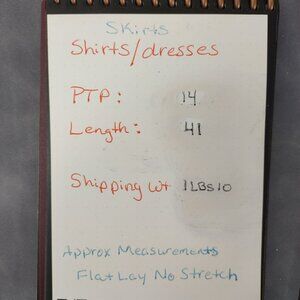 Skirts
Shirts/dresses
PTP: 14
Length: 41
Shipping wt 1LBS10
Approx Measurements
Flat Lay No Stretch